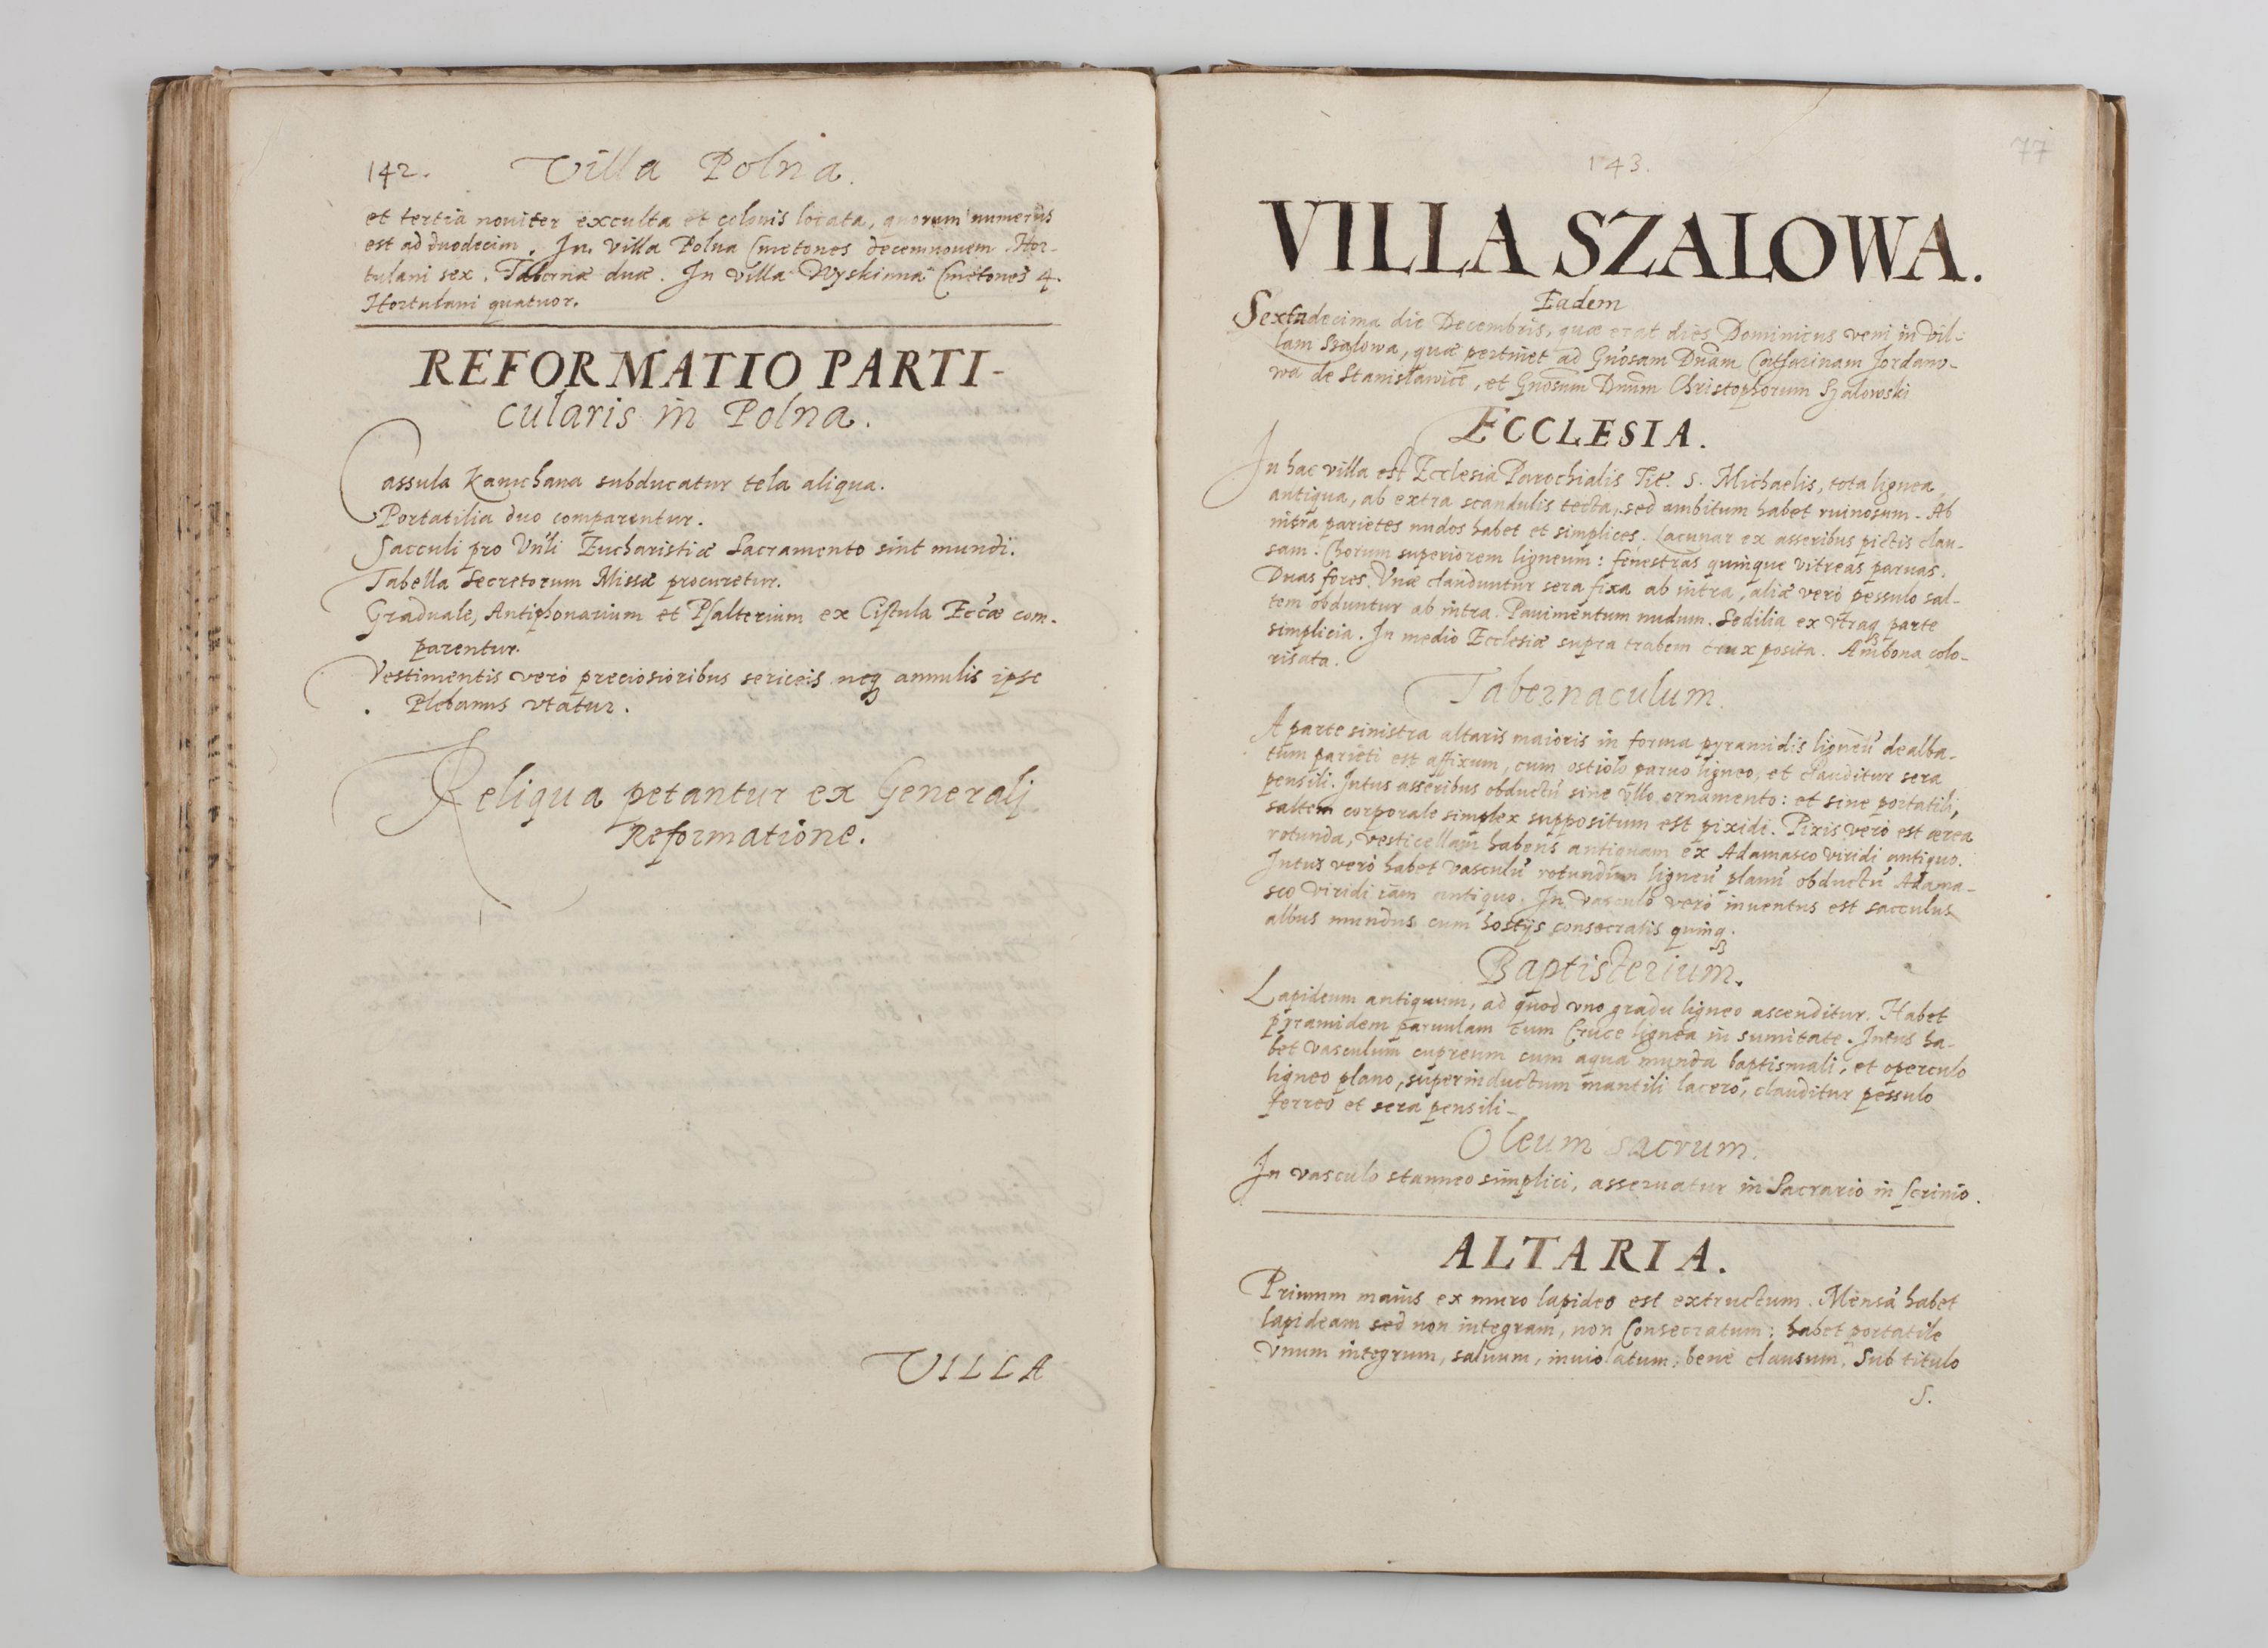 142. Villa Polna.
et tertia noviter exculta et colonis locata, quorum numerus
est ad duodecim. In Villa Polna Cmetones decemnovem. Hor-
tulani sex. Tabernæ duæ. In villa Wyskinna Cmetones 4.
Hortulani quatuor.
REFORMATIO PARTI-
cularis in Polna.
Cassula Kamchana subducatur tela aliqua.
Portatilia duo comparentur.
Sacculi pro Vnĺi Eucharistiæ Sacramento sint mundi.
Tabella Secretorum Missæ procuretur.
Graduale, Antiphonarium et Psalterium ex Cistula Eccæ com-
parentur.
Vestimentis verò preciosioribus sericeis neq annulis ipse
Plebanus vtatur.
Reliqua petantur ex Generalj
Reformatione.
VILLA
77
143.
VILLA SZALOWA.
Eadem
Sextadecima die Decembris, quæ erat dies Dominicus veni in Vil-
lam Szalowa, quæ pertinet ad Gnosam Dnam Catharinam Jordano-
wa de Stanislawice, et Gnosum Dnum Christophorum Szalowski
ECCLESIA.
In hac villa est Ecclesia Parochialis Tit. S. Michaelis, tota lignea
antiqua, ab extra scandulis tecta, sed ambitum habet ruinosum. Ab
intra parietes nudos habet et simplices. Lacunar ex asseribus pictis clau-
sam. Chorum superiorem ligneum: fenestras quinque vitreas paruas.
Duas fores. Vnæ clauduntur sera fixa ab intra, aliæ verò pessulo sal-
tem obduntur ab intra. Pauimentum nudum. Sedilia ex vtraq parte
simplicia. In medio Ecclesiæ supra trabem crux posita. Ambona colo-
risata.
Tabernaculum.
A parte sinistra altaris maioris in forma pyramidis ligneũ dealba-
tum parieti est affixum, cum ostiolo paruo ligneo, et clauditur sera
pensili. Intus asseribus obductũ sine vllo ornamento: et sine portatili,
saltem corporale simplex suppositum est pixidi. Pixis verò est ærea
rotunda, vesticellam habens antiquam ex Adamasco viridi antiquo.
Intus verò habet vasculũ rotundum ligneũ planũ obductũ Adama-
sco viridi iam antiquo. In vasculo verò inuentus est sacculus
albus mundus cum hostijs consecratis quinq.
Baptisterium.
Lapideum antiquum, ad quod vno gradu ligneo ascenditur. Habet
pyramidem paruulam cum Cruce lignea in sumitate. Intus ha-
bet vasculum cupreum cum aqua munda baptismali, et operculo
ligneo plano, superinductum mantili lacero, clauditur pessulo
ferreo et sera pensili-
Oleum sacrum.
In vasculo stanneo simplici, asseruatur in Sacrario in scrinio.
ALTARIA.
Primum maius ex muro lapideo est extructum. Mensã habet
lapideam sed non integram, non Consecratum: habet portatile
Vnum integrum, saluum, inuiolatum, bene clausum. Sub titulo
S.